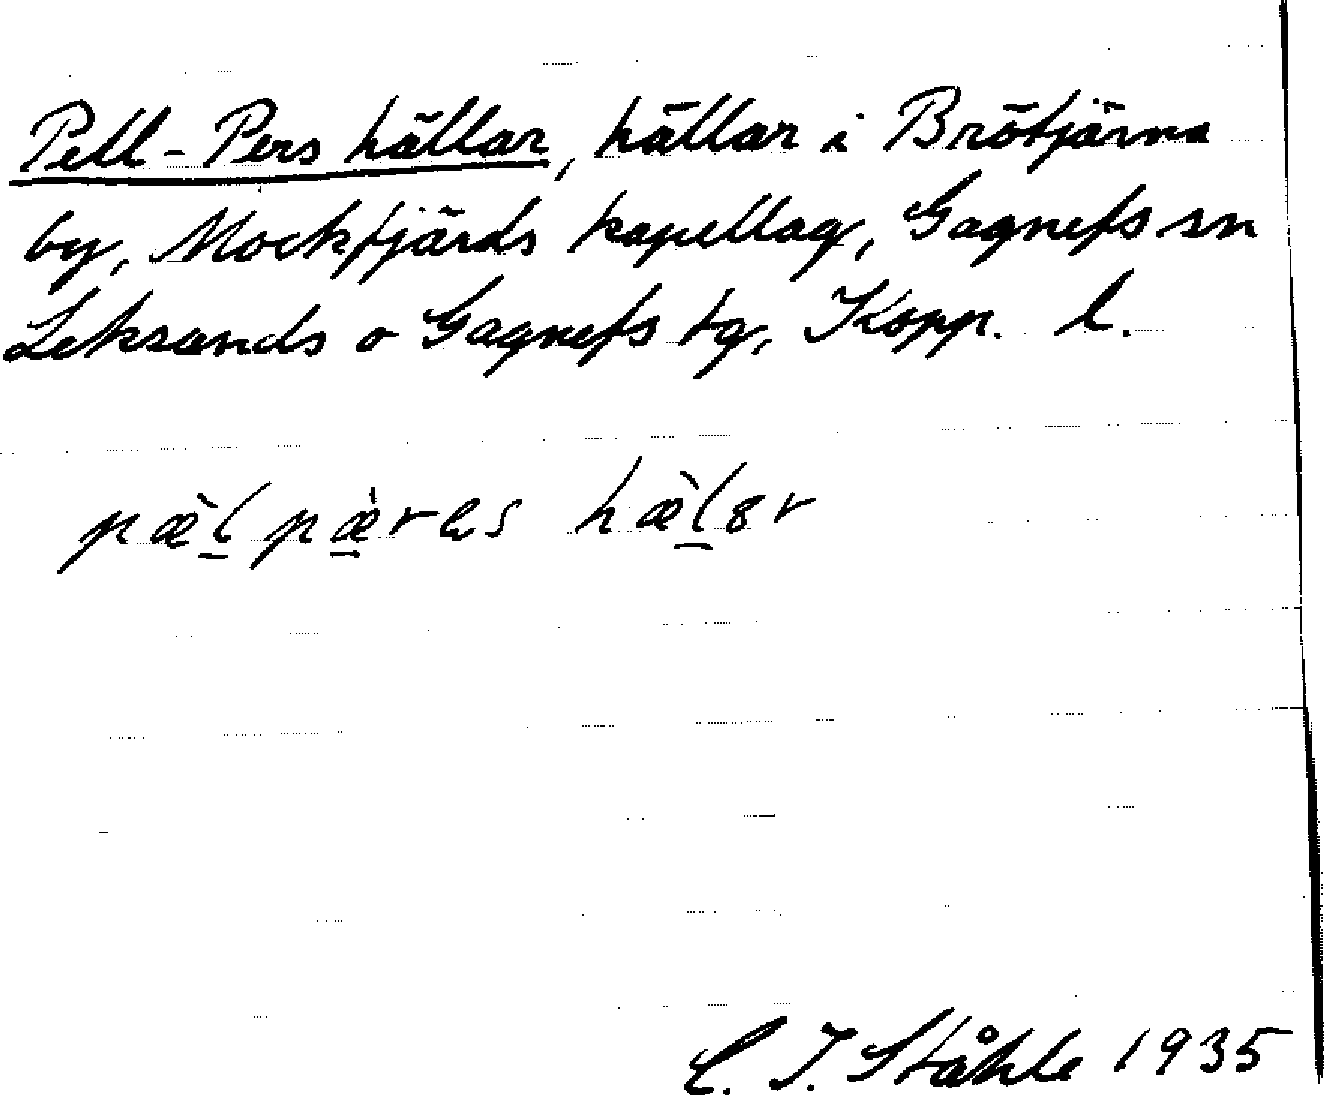 Pell-Pers hällar, hällar i Brötjärna
by, Mockfjärds kapellag, Gagnefs sn
Leksands o Gagnefs tg, Kopp. l.
C. I. Ståhle 1935